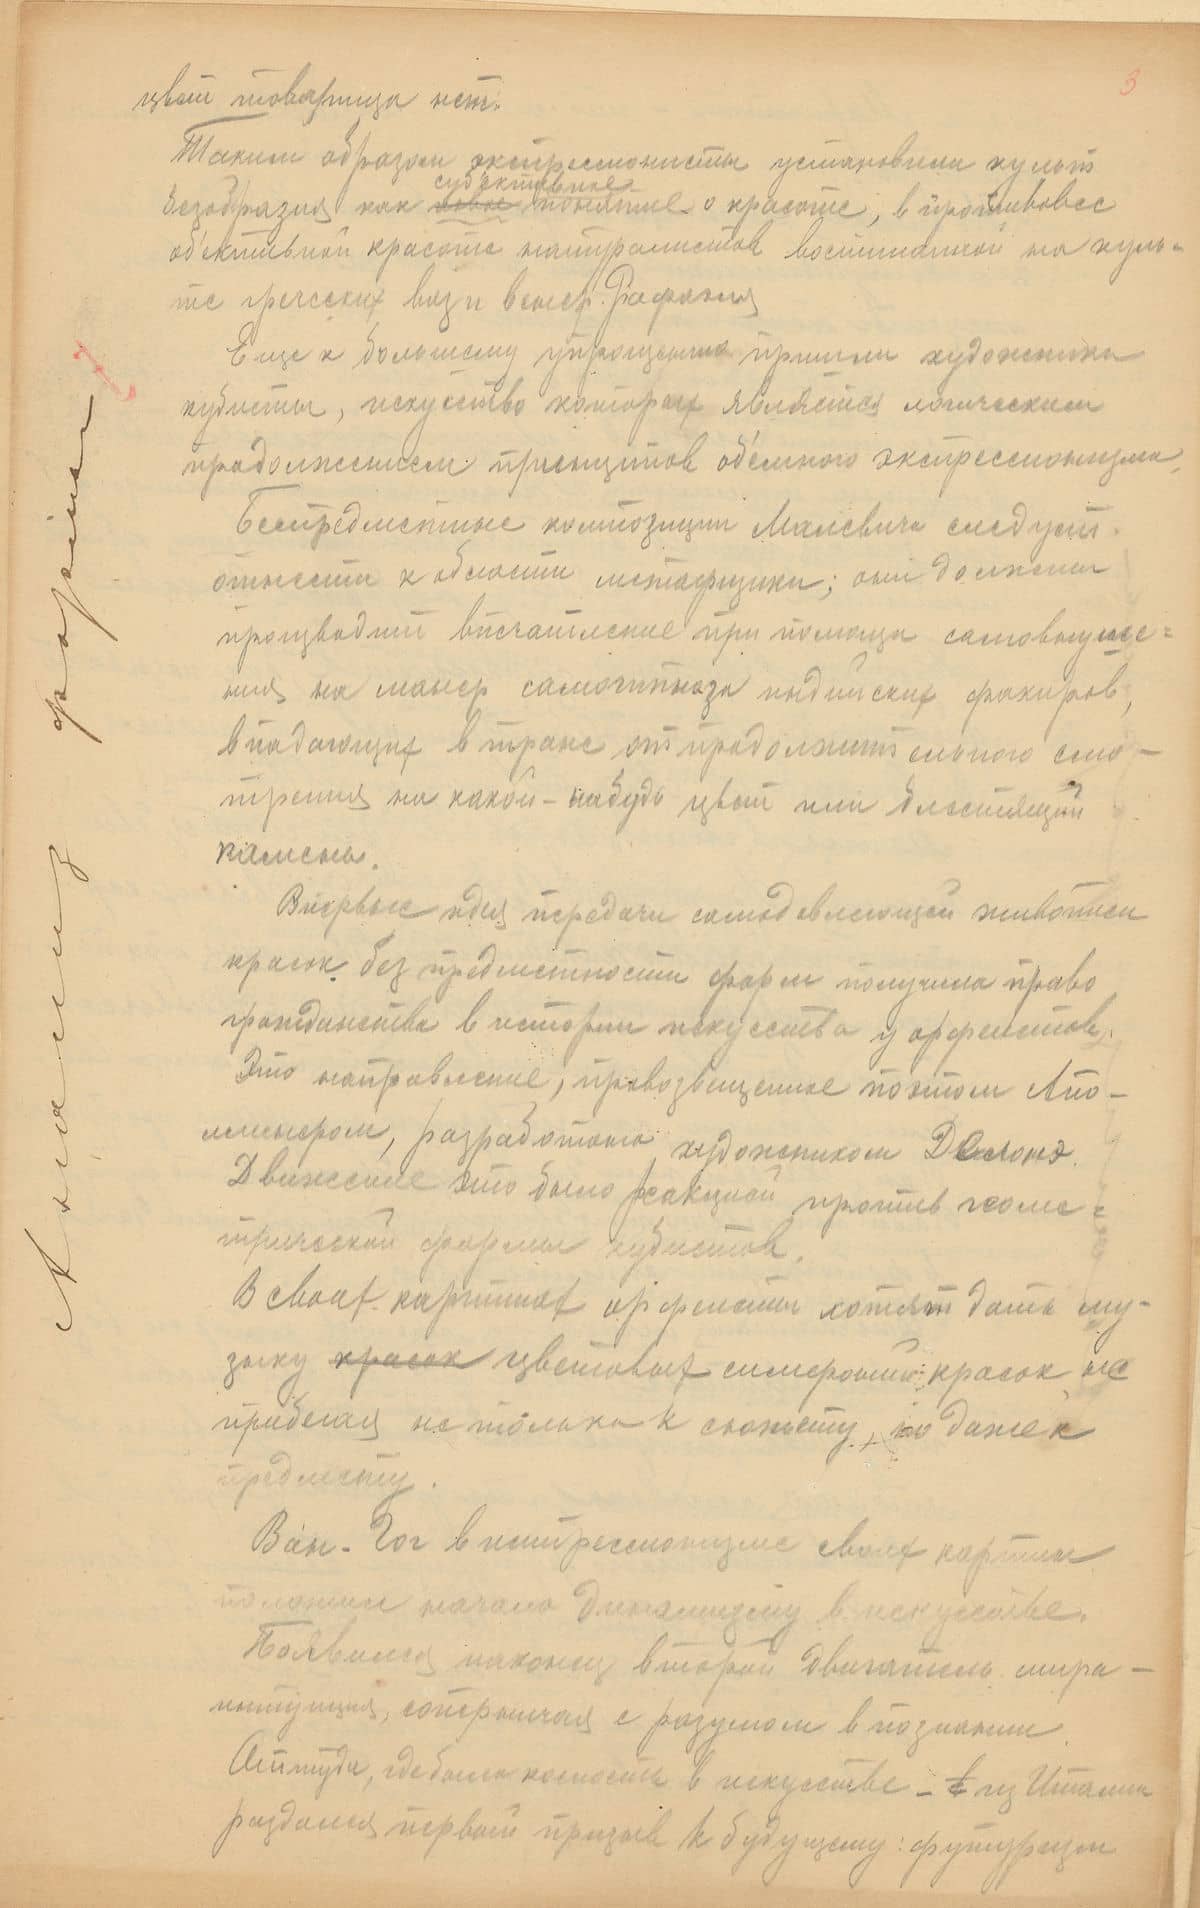 3
цвет товарища нет.
Таким образом экспрессионисты установили культ
безобразия как новое субъективное понятие о красоте, в противовес
об'ективной красоте натуралистов воспитанной на куль-
те греческих ваз и венер. Рафаэля
Еще к большему упрощению пришли художники
кубисты, искусство которых является логическим
продолжением принципов об'емного экспрессионизма.
Беспредметные композиции Малевича следует
отнести к области метафизики; они должны
производить впечатление при помощи самовнуше=
ния на манер самогипноза индийских факиров,
впадающих в транс от продолжительного смо-
трения на какой-нибудь цвет или блестящий
камень.
Впервые идея передачи самодовлеющей живописи
красок без предметности форм получила право
гражданства в истории искусства у орфеистов.
Это направление, провозвещенное поэтом Апо-
линером, разработано художником Делонэ.
Движение это было реакцией против геоме=
трической формы кубистов.
В своих картинах орфеисты хотят дать му-
зыку красок цветовых симфоний красок не
прибегая не только к сюжету, но даже к
предмету.
Ван-Гог в импрессионизме своих картин
положил начало динамизму в искусстве.
Появился наконец второй двигатель мира-
интуиция, соперничая с разумом в познании.
Оттуда, где была косность в искусстве - из Италии
раздался первый призыв к будущему: футуризм
Анализ формы